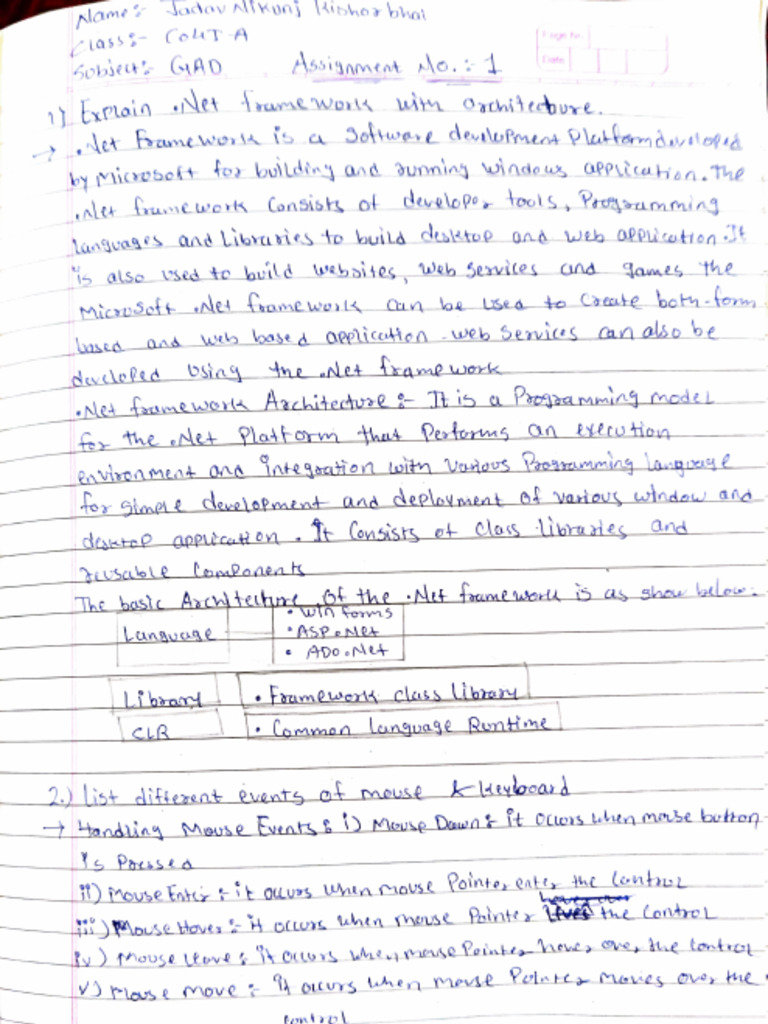 Name:- Jadav Nikunj Kishorbhai
Class:- Co4T-A
Page No.
Subject:- GAD Assignment No.: 1
Date
1) Explain .Net framework with architecture.
→ .Net Framework is a Software development Platform developed
by Microsoft for building and running windows application. The
.Net framework Consists of developer tools, Programming
languages and Libraries to build desktop and web application. It
is also used to build websites, web services and games the
Microsoft .Net framework can be used to create both-form
based and web based application web services can also be
developed Using the .Net framework
.Net framework Architecture:- It is a Programming model
for the .Net Platform that Performs an execution
environment and integration with various Programming language
for simple development and deployment of various window and
desktop application. It Consists of class libraries and
reusable Components
The basic Architecture of the .Net framework is as show below:
Language
• Win forms
• ASP.Net
• ADO.Net
Library • Framework class library
CLR • Common language Runtime
2.) List different events of mouse & keyboard
→ Handling Mouse Events: i) Mouse Down: it occurs when mouse button
is Pressed
ii) Mouse Enter: it occurs when mouse Pointer enter the Control
hover over
iii) Mouse Hover:- it occurs when mouse Pointer the Control
iv) Mouse leave: it occurs when mouse Pointer hover over the control
v) Mouse move:- it occurs when mouse Pointer moves over the
Control